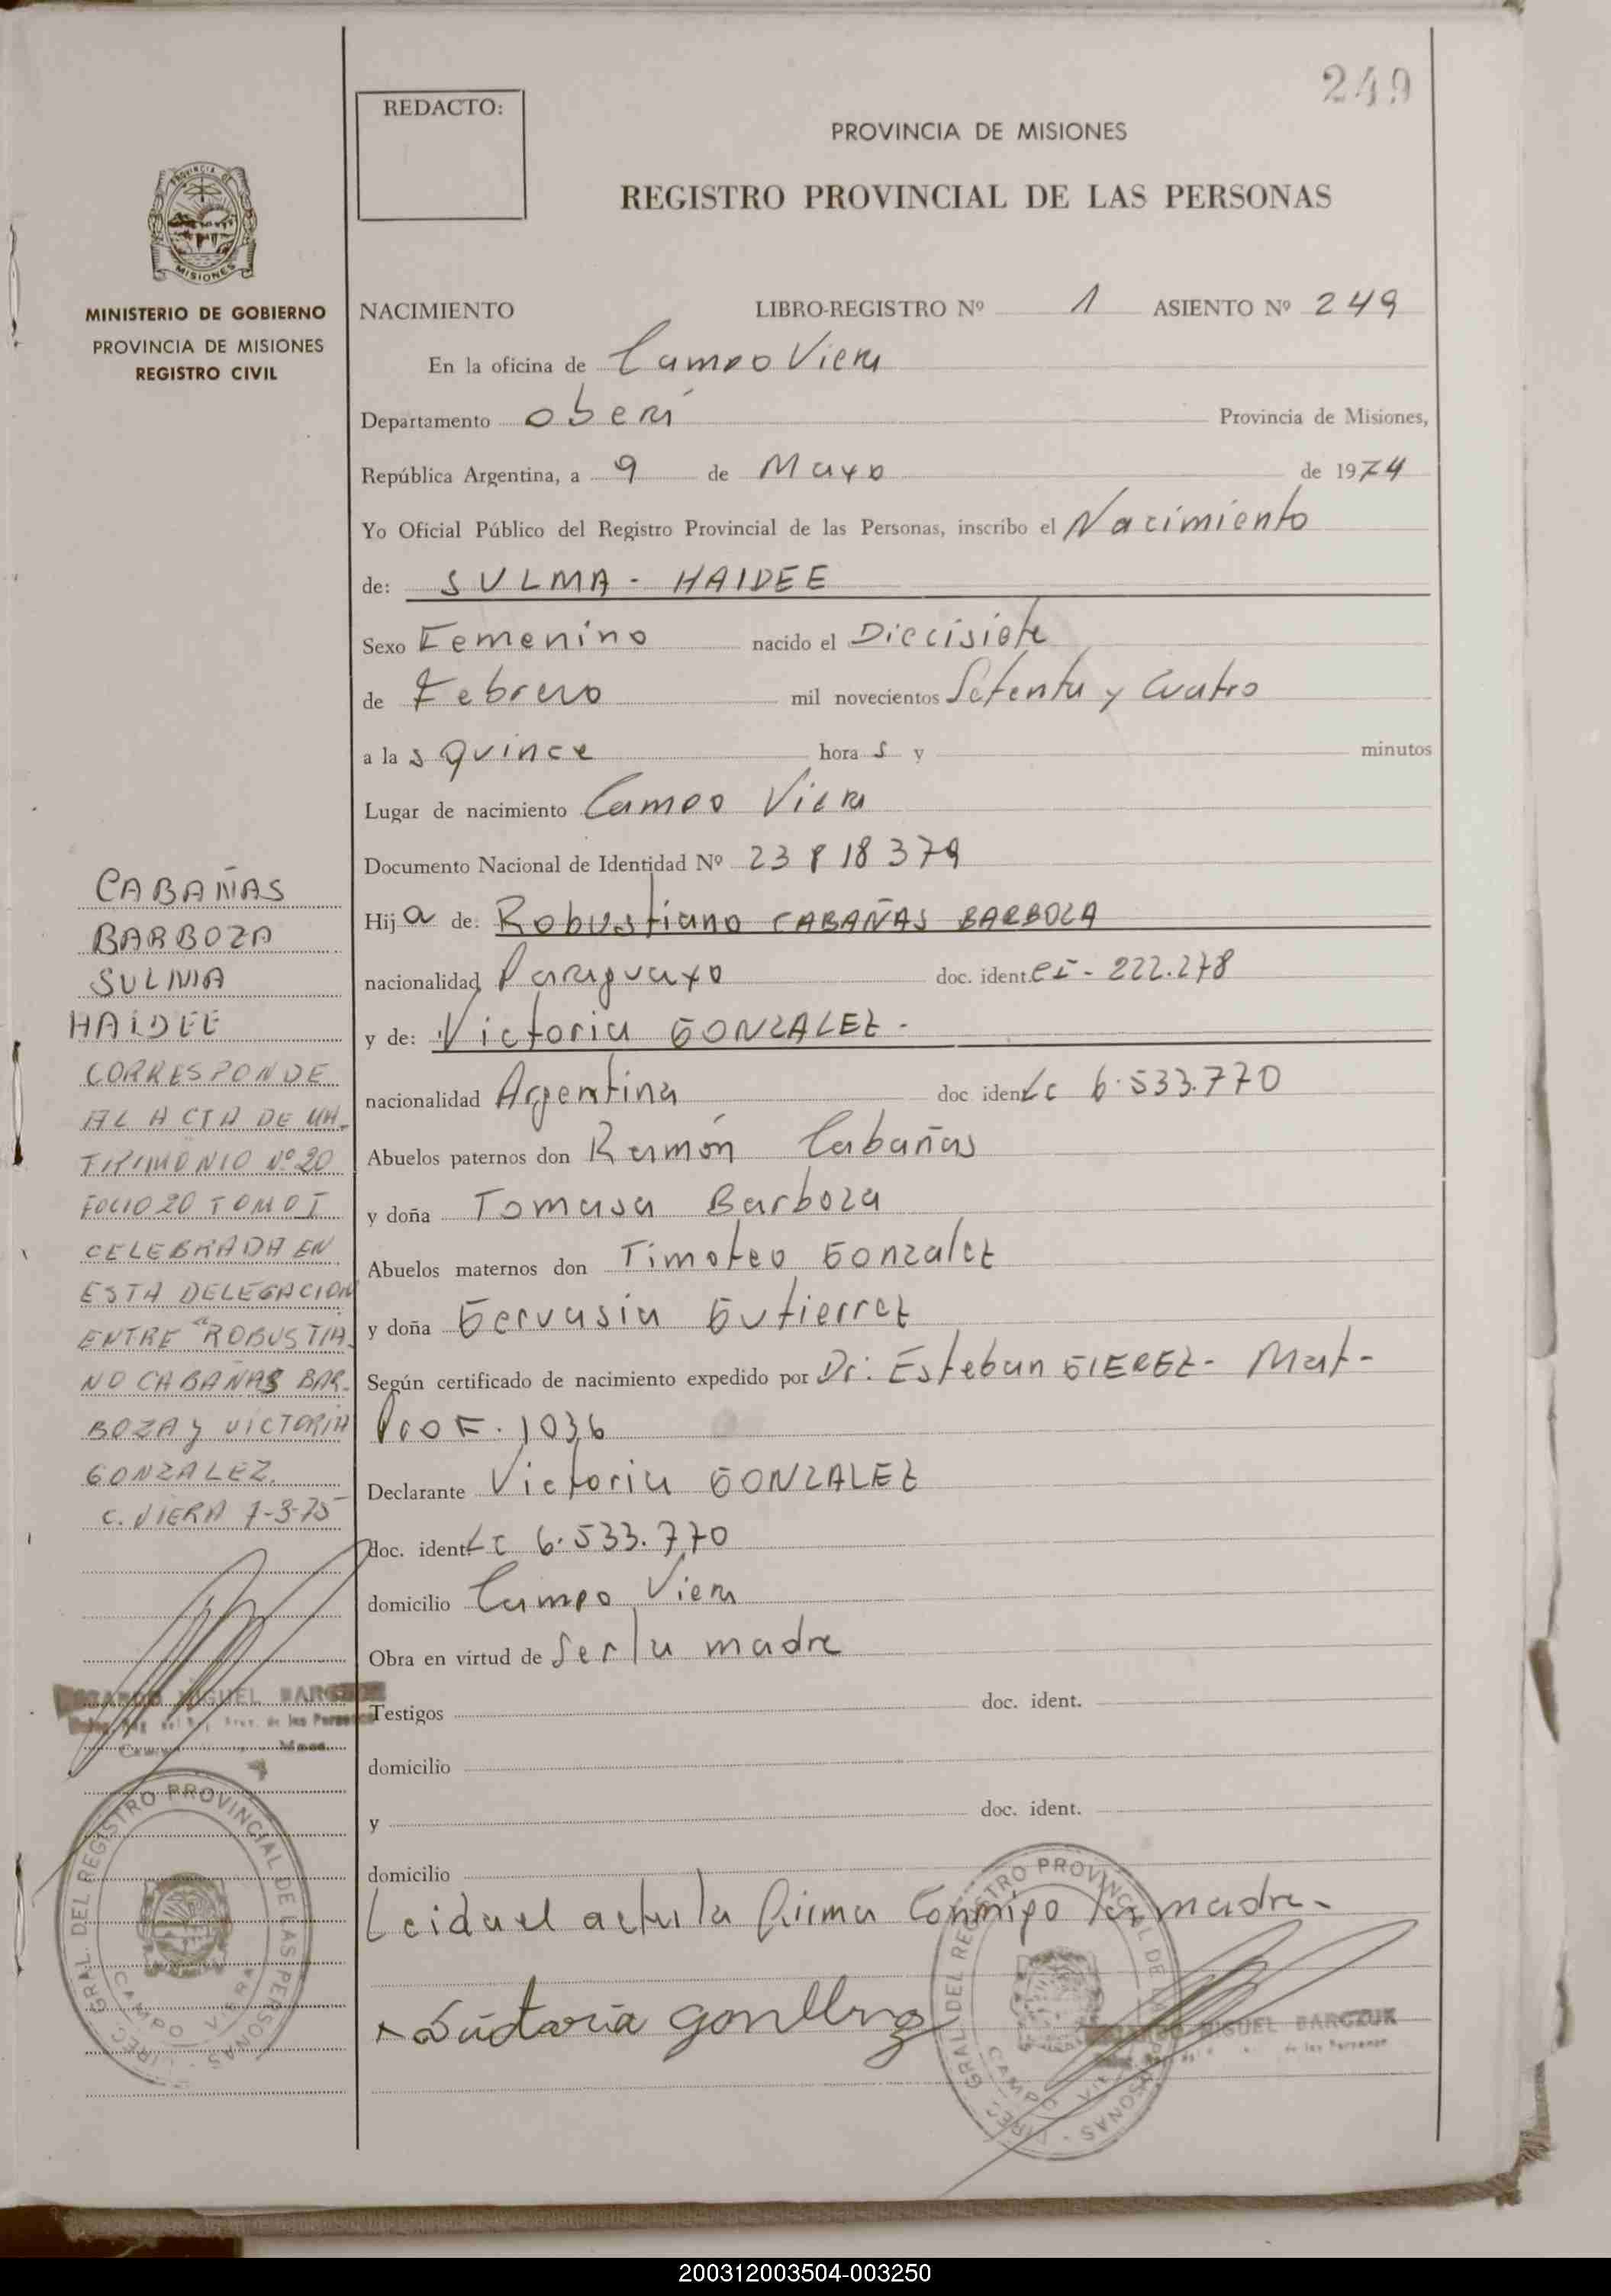 249
REDACTO:
PROVINCIA DE MISIONES
REGISTRO PROVINCIAL DE LAS PERSONAS
PROVINCIA DE
MISIONES
MINISTERIO DE GOBIERNO
PROVINCIA DE MISIONES
REGISTRO CIVIL
NACIMIENTO LIBRO-REGISTRO Nº 1 ASIENTO Nº 249
En la oficina de Campo Viera
Departamento oberá Provincia de Misiones,
República Argentina, a 9 de Mayo de 1974
Yo Oficial Público del Registro Provincial de las Personas, inscribo el Nacimiento
de: SULMA - HAIDEE
Sexo Femenino nacido el Diecisiete
de Febrero mil novecientos Setenta y Cuatro
a la s quince hora s y minutos
Lugar de nacimiento Campo Viera
Documento Nacional de Identidad Nº 23 818 379
Hij a de: Robustiano CABAÑAS BARBOZA
nacionalidad Paraguayo doc. ident. CI - 222.278
y de: Victoria GONZALEZ -
nacionalidad Argentina doc. ident. LC 6.533.770
Abuelos paternos don Ramón Cabañas
y doña Tomasa Barboza
Abuelos maternos don Timoteo Gonzalez
y doña Gervasia Gutierrez
Según certificado de nacimiento expedido por Dr: Esteban GIEREZ - Mat-
Prof. 1036
Declarante Victoria GONZALEZ
doc. ident. LC 6.533.770
domicilio Campo Viera
Obra en virtud de Ser la madre
Testigos doc. ident.
domicilio
y doc. ident.
domicilio
Leida el acta la firma Conmigo la madre-
Victoria Gonzalez
MIGUEL BARCZUK
de las Personas
CABAÑAS
BARBOZA
SULMA
HAIDEE
CORRESPONDE
AL ACTA DE MA-
TRIMONIO Nº 20
FOLIO 20 TOMO I
CELEBRADA EN
ESTA DELEGACION
ENTRE "ROBUSTIA-
NO CABAÑAS BAR-
BOZA y VICTORIA
GONZALEZ.
C. VIERA 7-3-75
MIGUEL BARCZUK
de las Personas
DIREC. GRAL. DEL REGISTRO PROVINCIAL DE LAS PERSONAS
CAMPO VIERA
DIREC. GRAL. DEL REGISTRO PROVINCIAL DE LAS PERSONAS
CAMPO VIERA
200312003504-003250